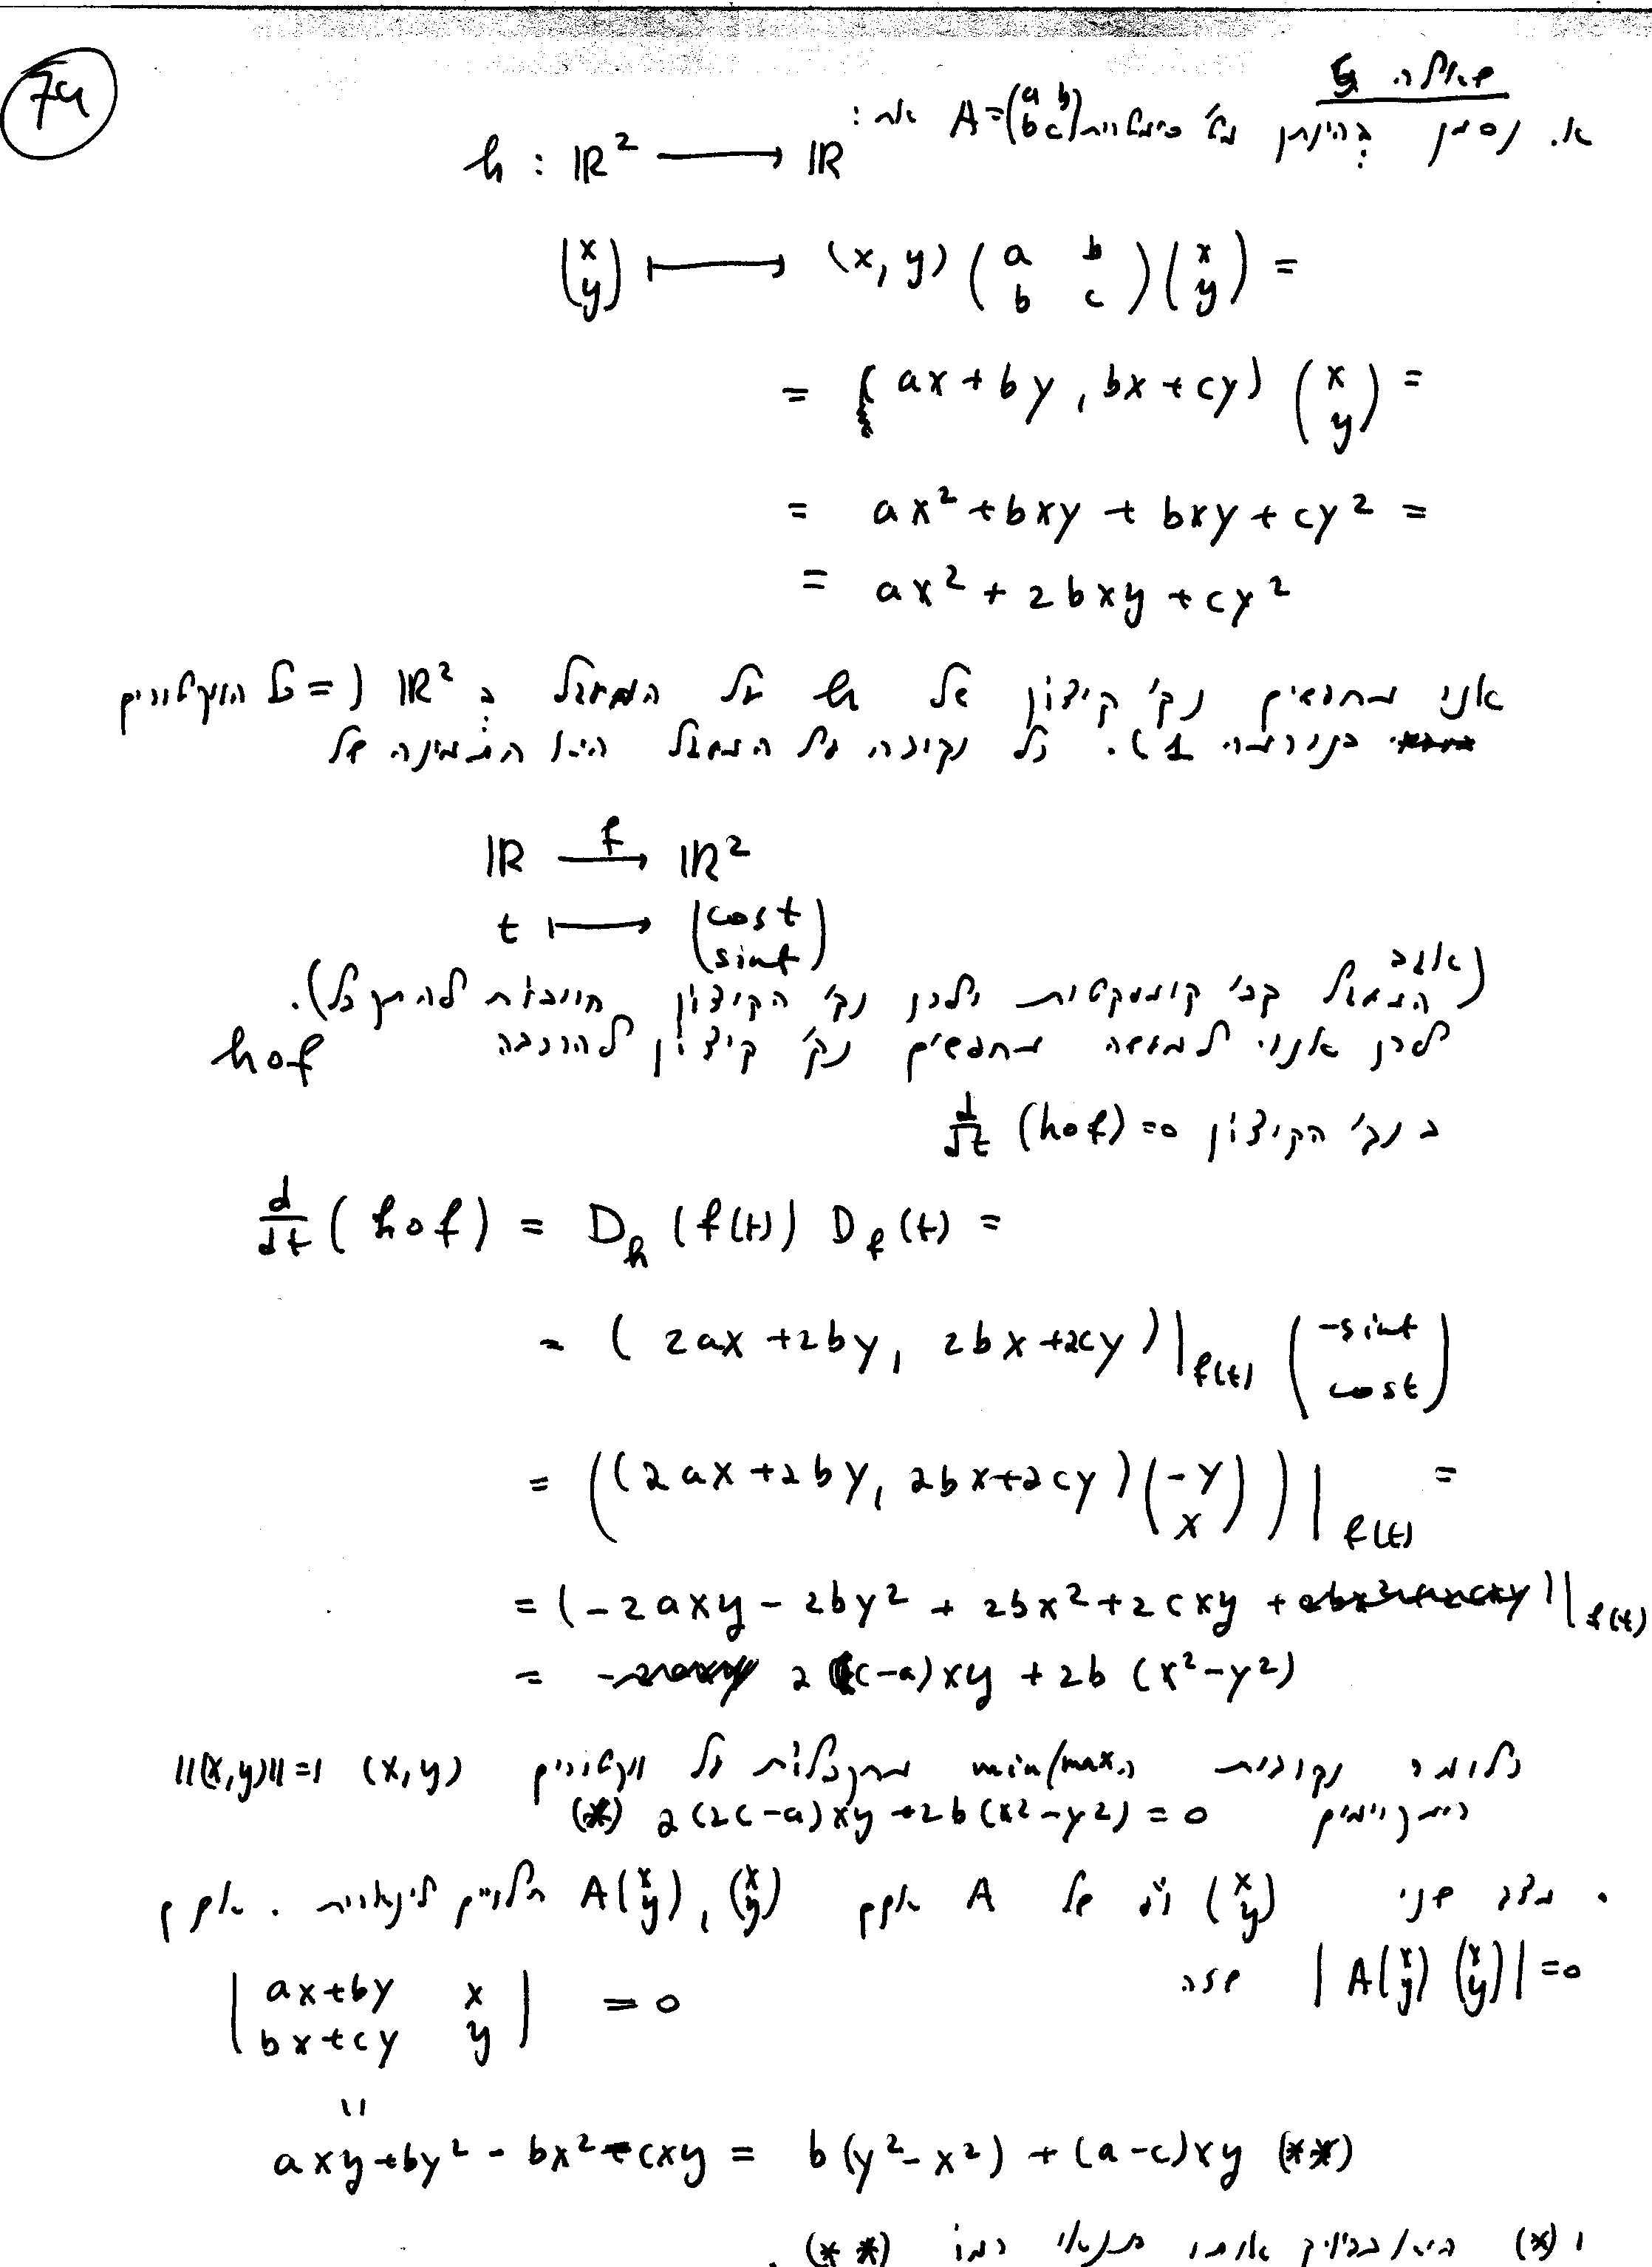 74
שאלה 5
א. נסמן בהינתן מט' סימטרית A=(a b b c) את:
h : ℝ² ⟶ ℝ
(x y) ⟼ (x, y) (a b b c) (x y) =
= (ax+by, bx+cy) (x y) =
= ax² + bxy + bxy + cy² =
= ax² + 2bxy + cy²
אנו מחפשים נק' קיצון של h על המעגל ב ℝ² (= כל הוקטורים
בנורמה 1). כל נקודה על המעגל היא התמונה של
ℝ ⟶f ℝ²
t ⟼ (cost sint)
(אגב המעגל קב' קומפקטית ולכן נק' הקיצון חייבות להתקבל).
לכן אנו למעשה מחפשים נק' קיצון להרכבה h∘f
בנק' הקיצון d/dt (h∘f) = 0
d/dt (h∘f) = D_h (f(t)) D_f (t) =
= (2ax+2by, 2bx+2cy)|_f(t) (-sint cost)
= ((2ax+2by, 2bx+2cy) (-y x))|_f(t) =
= (-2axy - 2by² + 2bx² + 2cxy + )|_f(t)
= 2(c-a)xy + 2b(x²-y²)
כלומר נקודות ה min/max מתקבלות על וקטורים (x,y) ‖(x,y)‖=1
המקיימים 2(2c-a)xy+2b(x²-y²) = 0 (*)
. מצד שני (x y) ו"ע של A אמ"מ (x y) , A(x y) תלויים לינארית. אמ"מ
|A(x y) (x y)| = 0 שזה
|ax+by x bx+cy y| = 0
"
axy+by² - bx² - cxy = b(y²-x²) + (a-c)xy (**)
ו (*) היא בדיוק אותו תנאי כמו (**).